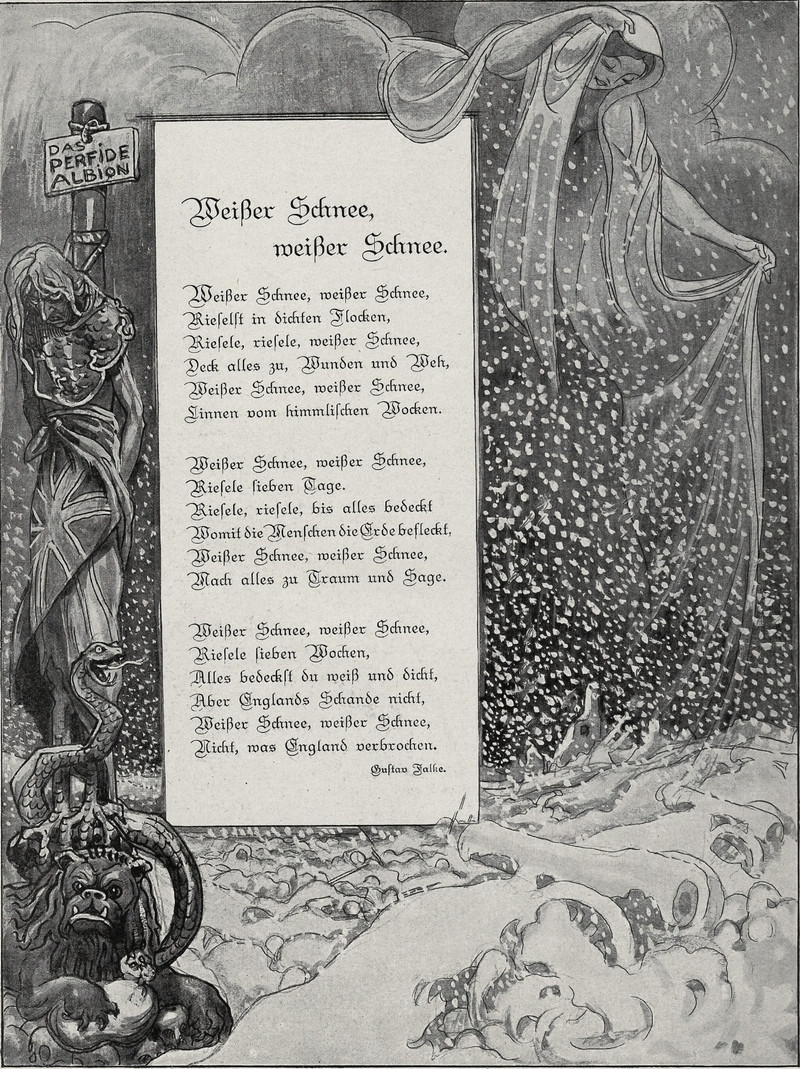 DAS
PERFIDE
ALBION
Weißer Schnee,
weißer Schnee.
Weißer Schnee, weißer Schnee,
Rieselst in dichten Flocken,
Riesele, riesele, weißer Schnee,
Deck alles zu, Wunden und Weh,
Weißer Schnee, weißer Schnee,
Linnen vom himmlischen Wocken.
Weißer Schnee, weißer Schnee,
Riesele sieben Tage.
Riesele, riesele, bis alles bedeckt
Womit die Menschen die Erde befleckt,
Weißer Schnee, weißer Schnee,
Mach alles zu Traum und Sage.
Weißer Schnee, weißer Schnee,
Riesele sieben Wochen,
Alles bedeckst du weiß und dicht,
Aber Englands Schande nicht,
Weißer Schnee, weißer Schnee,
Nicht, was England verbrochen.
Gustav Falke.